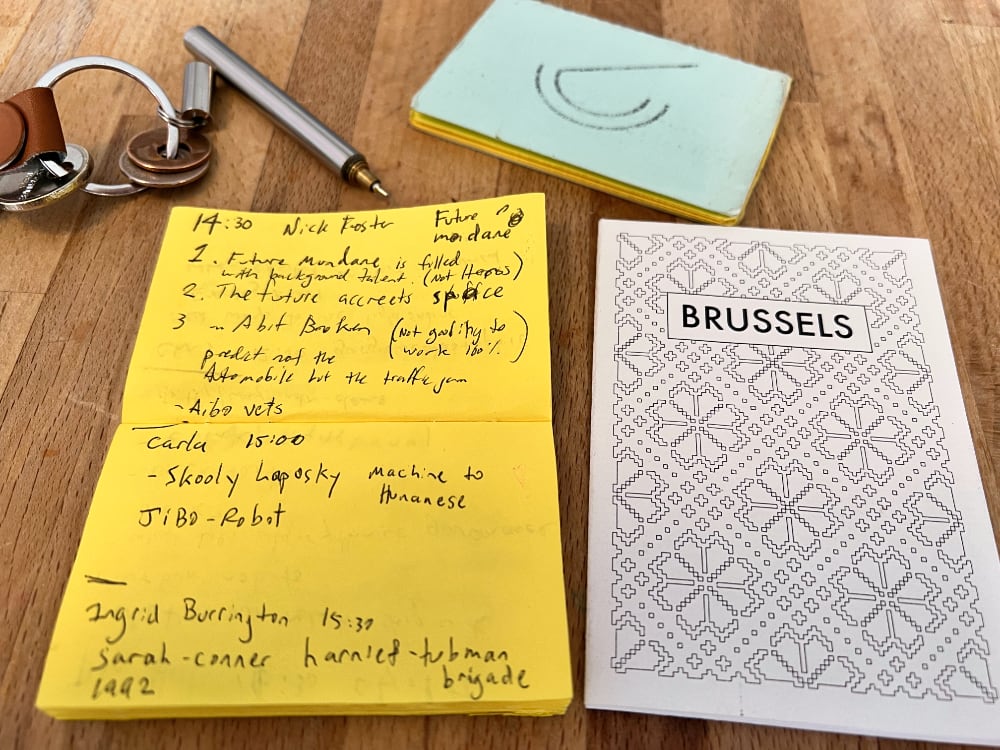 14:30 Nick Foster Future
mondane
1. Future Mundane is filled
with background talent. (Not Heros)
2. The future accreets space
3 ~ A bit Broken (Not going to
work 100%.)
predict not the
Automobile but the traffic jam
- Aibo vets
Carla 15:00
- Skooly Laposky Machine to
Humanese
JiBO - Robot
Ingrid Burrington 15:30
Sarah-conner harriet-tubman
brigade
1992
BRUSSELS